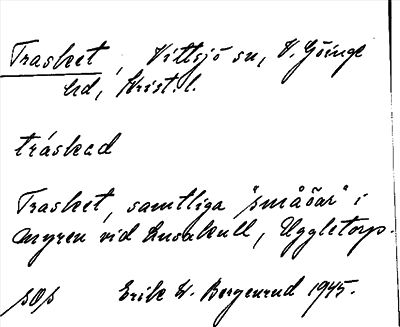 Trasket, Vittsjö sn, V. Göinge
hd, Krist. l.
tráskad
Trasket, samtliga "småöar" i
myren vid Lusakull, Uggletorp.
sop Erik W. Bergenrud 1945.